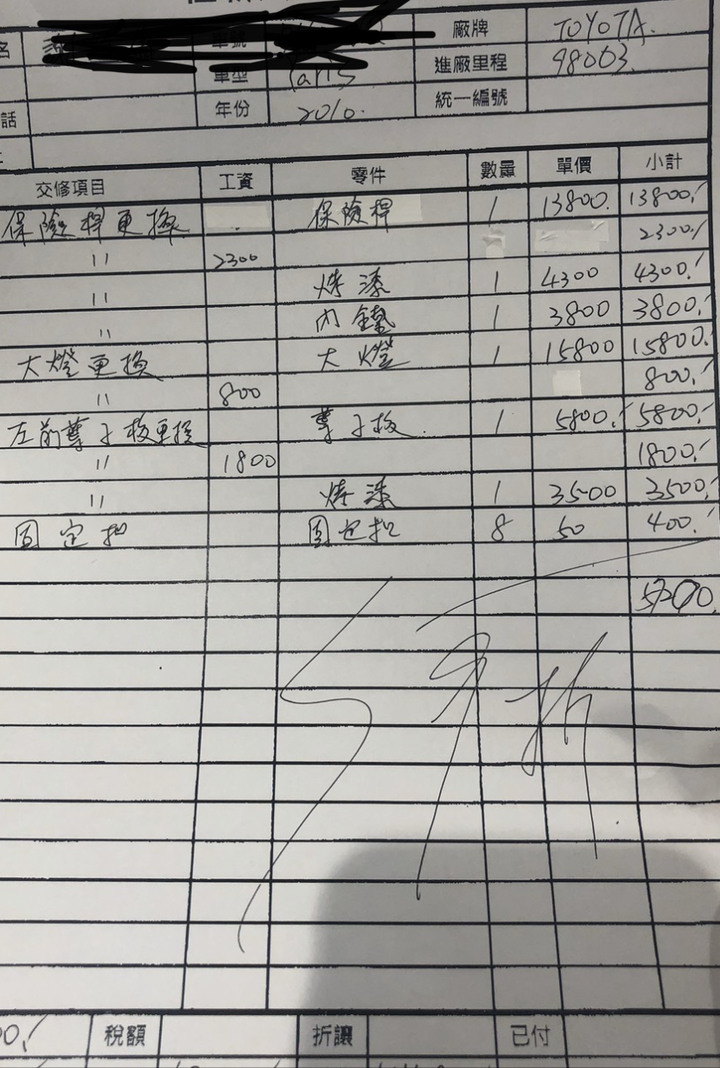 名 廠牌 TOYOTA.
車型 Yaris 進廠里程 98003
話 年份 2010. 統一編號
交修項目 工資 零件 數量 單價 小計
保險桿更換 保險桿 1 13800. 13800.
〃 2300 2300.
〃 烤漆 1 4300 4300.
〃 內鐵 1 3800 3800.
大燈更換 大燈 1 15800 15800.
〃 800 800.
左前葉子板更換 葉子板. 1 5800. 5800.
〃 1800 1800.
〃 烤漆 1 3500 3500.
固定扣 固定扣 8 50 400.
00. 稅額 折讓 已付